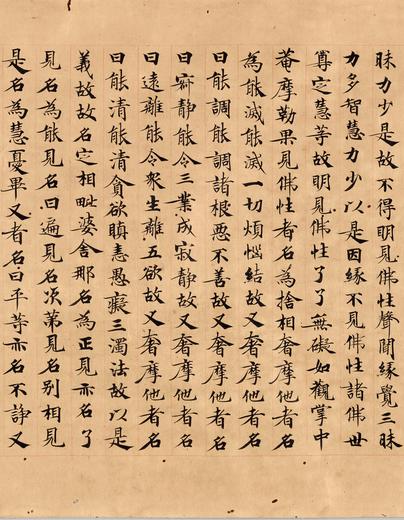 昧力少是故不得明見佛性聲聞緣覺三昧
力多智慧力少以是因緣不見佛性諸佛世
尊定慧等故明見佛性了了無礙如觀掌中
菴摩勒果見佛性者名為捨相奢摩他者名
為能滅能滅一切煩惱結故又奢摩他者名
曰能調能調諸根惡不善故又奢摩他者名
曰寂靜能令三業成寂靜故又奢摩他者名
曰遠離能令衆生離五欲故又奢摩他者名
曰能清能清貪欲瞋恚愚癡三濁法故以是
義故故名定相毗婆舍那名為正見亦名了
見名為能見名曰遍見名次第見名別相見
是名為慧憂畢叉者名曰平等亦名不諍又